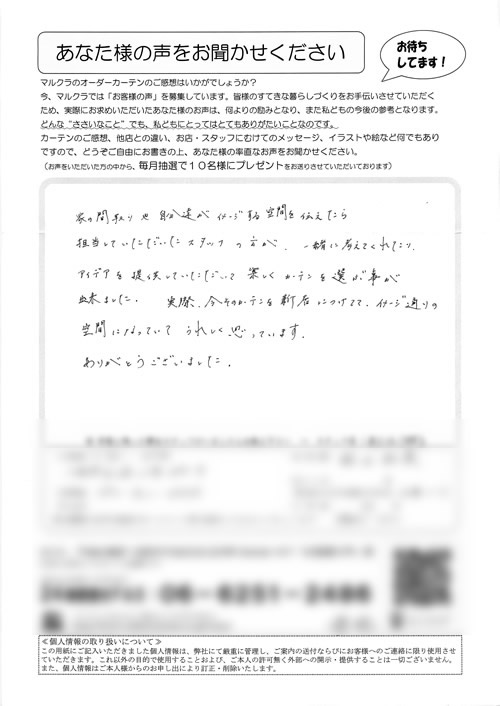 あなた様の声をお聞かせください
お待ち
してます！
マルクラのオーダーカーテンのご感想はいかがでしょうか？
今、マルクラでは「お客様の声」を募集しています。皆様のすてきな暮らしづくりをお手伝いさせていただく
ため、実際にお求めいただいたあなた様のお声は、何よりの励みとなり、また私どもの今後の参考となります。
どんな“ささいなこと”でも、私どもにとってはとてもありがたいことなのです。
カーテンのご感想、他店との違い、お店・スタッフにむけてのメッセージ、イラストや絵など何でもあり
ですので、どうぞご自由にお書きの上、あなた様の率直なお声をお聞かせください。
（お声をいただいた方の中から、毎月抽選で１０名様にプレゼントをお送りさせていただいております）
家の間取りや自分達がイメージする空間を伝えたら
担当していただいたスタッフの方が、一緒に考えてくれたり、
アイデアを提供していただいて楽しくカーテンを選ぶ事が
出来ました。 実際、今そのカーテンを新居につけてて、イメージ通りの
空間になっていてうれしく思っています。
ありがとうございました。
06-6251-2486
≪個人情報の取り扱いについて≫
この用紙にご記入いただきました個人情報は、弊社にて厳重に管理し、ご案内の送付ならびにお客様へのご連絡に限り使用させ
ていただきます。これ以外の目的で使用することおよび、ご本人の許可無く外部への開示・提供することは一切ございません。
また、個人情報はご本人様からのお申し出により訂正・削除いたします。